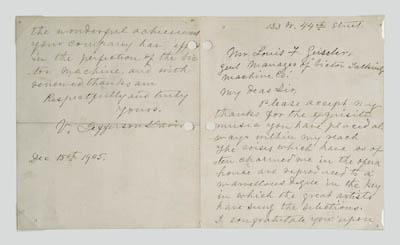 133 W. 44th Street
Mr. Louis F. Geissler,
Genl Manager of Victor Talking
Machine Co.
My Dear Sir,
Please accept my
thanks for the exquisite
music you have placed al
ways within my reach
The voices which have so of
ten charmed me in the opera
house are reproduced to a
marvellous degree in the key
in which the great artists
have sung the selections.
I congratulate you upon
the wonderful achievement
your company has
in the perfection of the Vic
tor Machine, and with
renewed thanks am
Respectfully and truly
Yours.
V. Jefferson Davis
Dec 15th, 1905.